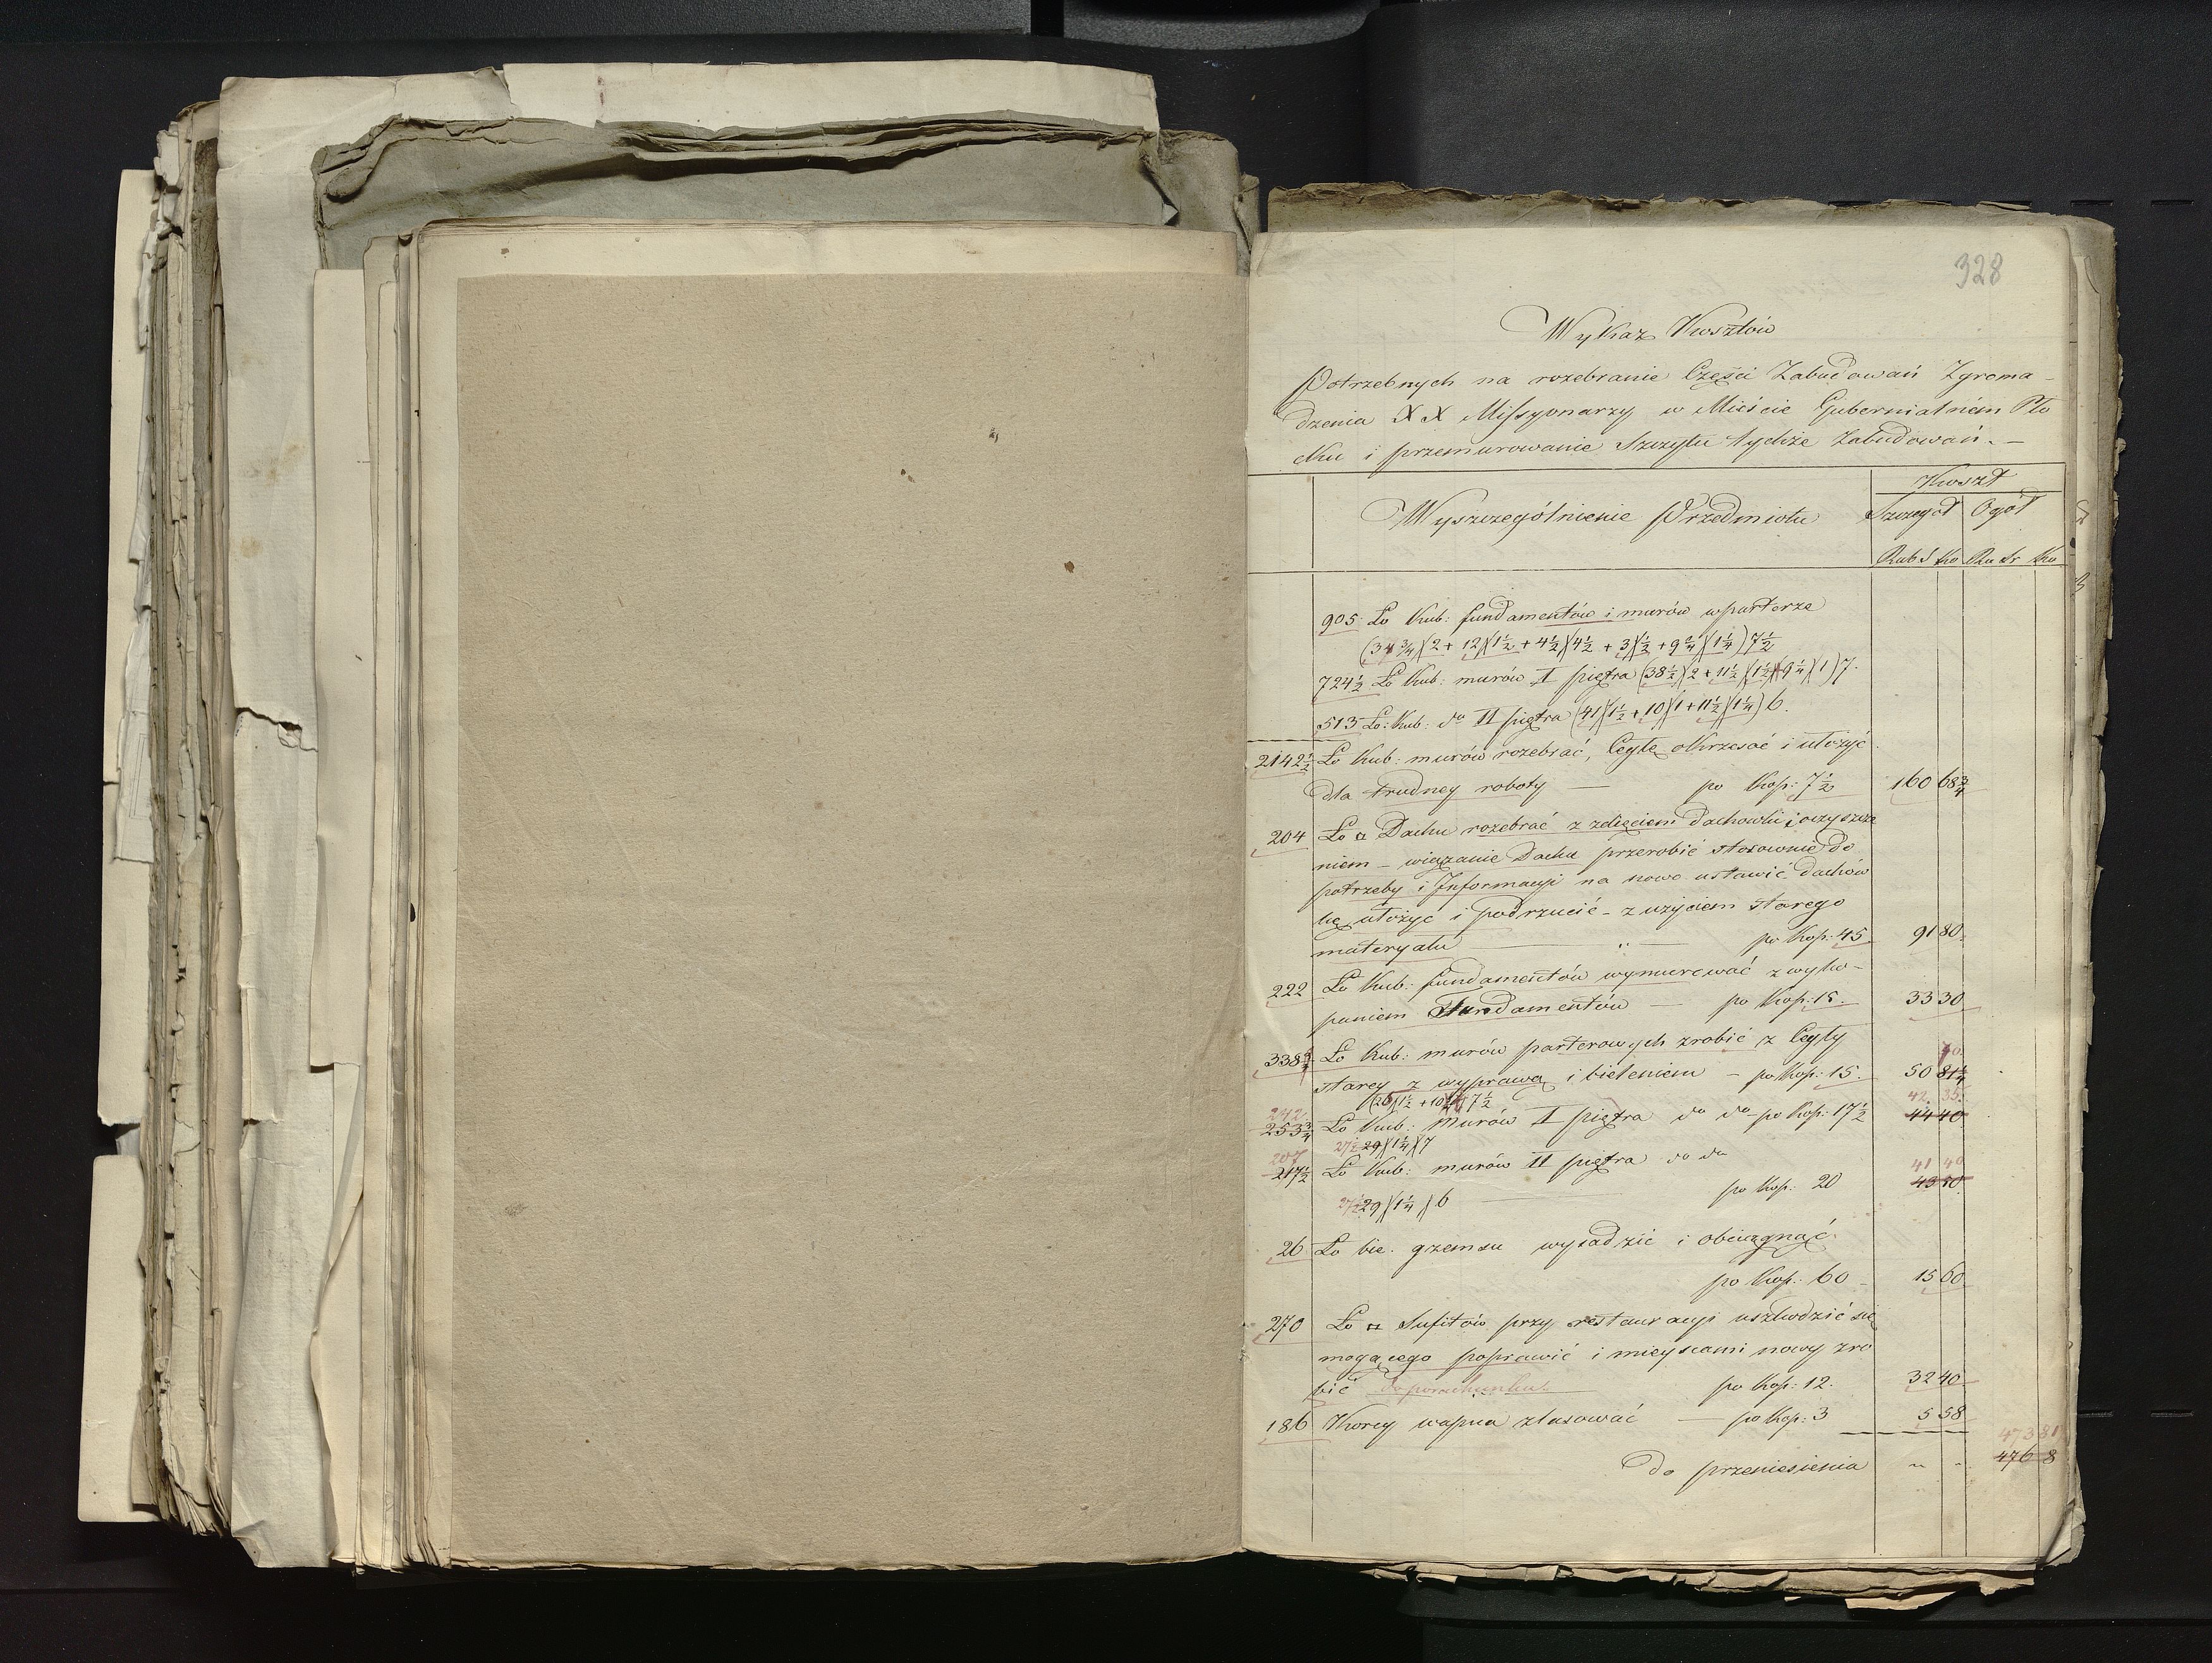 328
Wykaz Kosztów
Potrzebnych na rozebranie Części Zabudowań Zgroma-
dzenia XX Missyonarzy w Mieście Gubernialném Pło
cku i przemurowanie Szczytu tychże Zabudowań.—
Koszt
Wyszczególnienie Przedmiotu Szczegół Ogół
Rub S Ko Ru Sr Ko
905 Ło Kub: fundamentów i murów wparterze
(34 3/4)(2 + 12)(1 1/2 + 4 1/2)(4 1/2 + 3)(1/2 + 9 2/4)(1 1/4) 7 1/2
724 1/2 Ło Kub: murów I piętra (38 1/2)(2 + 11 1/2)(1 1/2)(9 1/4)(1) 7.
513 Ło: Kub: do II piętra (41)(1 1/2 + 10)(1 + 11 1/2)(1 1/4) 6.
2142 1/2 Ło Kub: murów rozebrać, Cegłę okrzesać i ułożyć
dla trudney roboty — po Kop: 7 1/2 160 68 3/4
204 Ło □ Dachu rozebrać z zdięciem dachówki i oczyszcze
niem – wiązanie Dachu przerobić stosownie do
potrzeby i Informacyi na nowo ustawić dachów
kę ułożyć i podrzucić – z użyciem starego
materyału — " — po Kop: 45 91 80.
222 Ło Kub: fundamentów wymurować z wyko-
paniem Fundamentów — po Kop: 15. 33 30
70.
338 3/4 Ło Kub: murów parterowych zrobić z Cegły
starey z wyprawą i bieleniem – po Kop: 15. 50 81 1/4
7 1/2
242. 42. 35.
253 3/4 Ło Kub: Murów I piętra do do po Kop: 17 1/2 44 40
27 1/2 29)(1 1/4)(7
207 41 40
217 1/2 Ło Kub: murów II piętra do do
27 1/2 29)(1 1/4)(6 — po Kop: 20 43 50
26 Ło bie. gzemsu wysadzić i obciągnąć
po Kop: 60 – 15 60.
270 Ło □ Sufitów przy restauracyi uszkodzić się
mogącego poprawić i mieyscami nowy zro
bić do porachunku. po Kop: 12. 32 40.
186 Korcy wapna zlasować — po Kop: 3 5 58
473 81
do przeniesienia " " 476 8